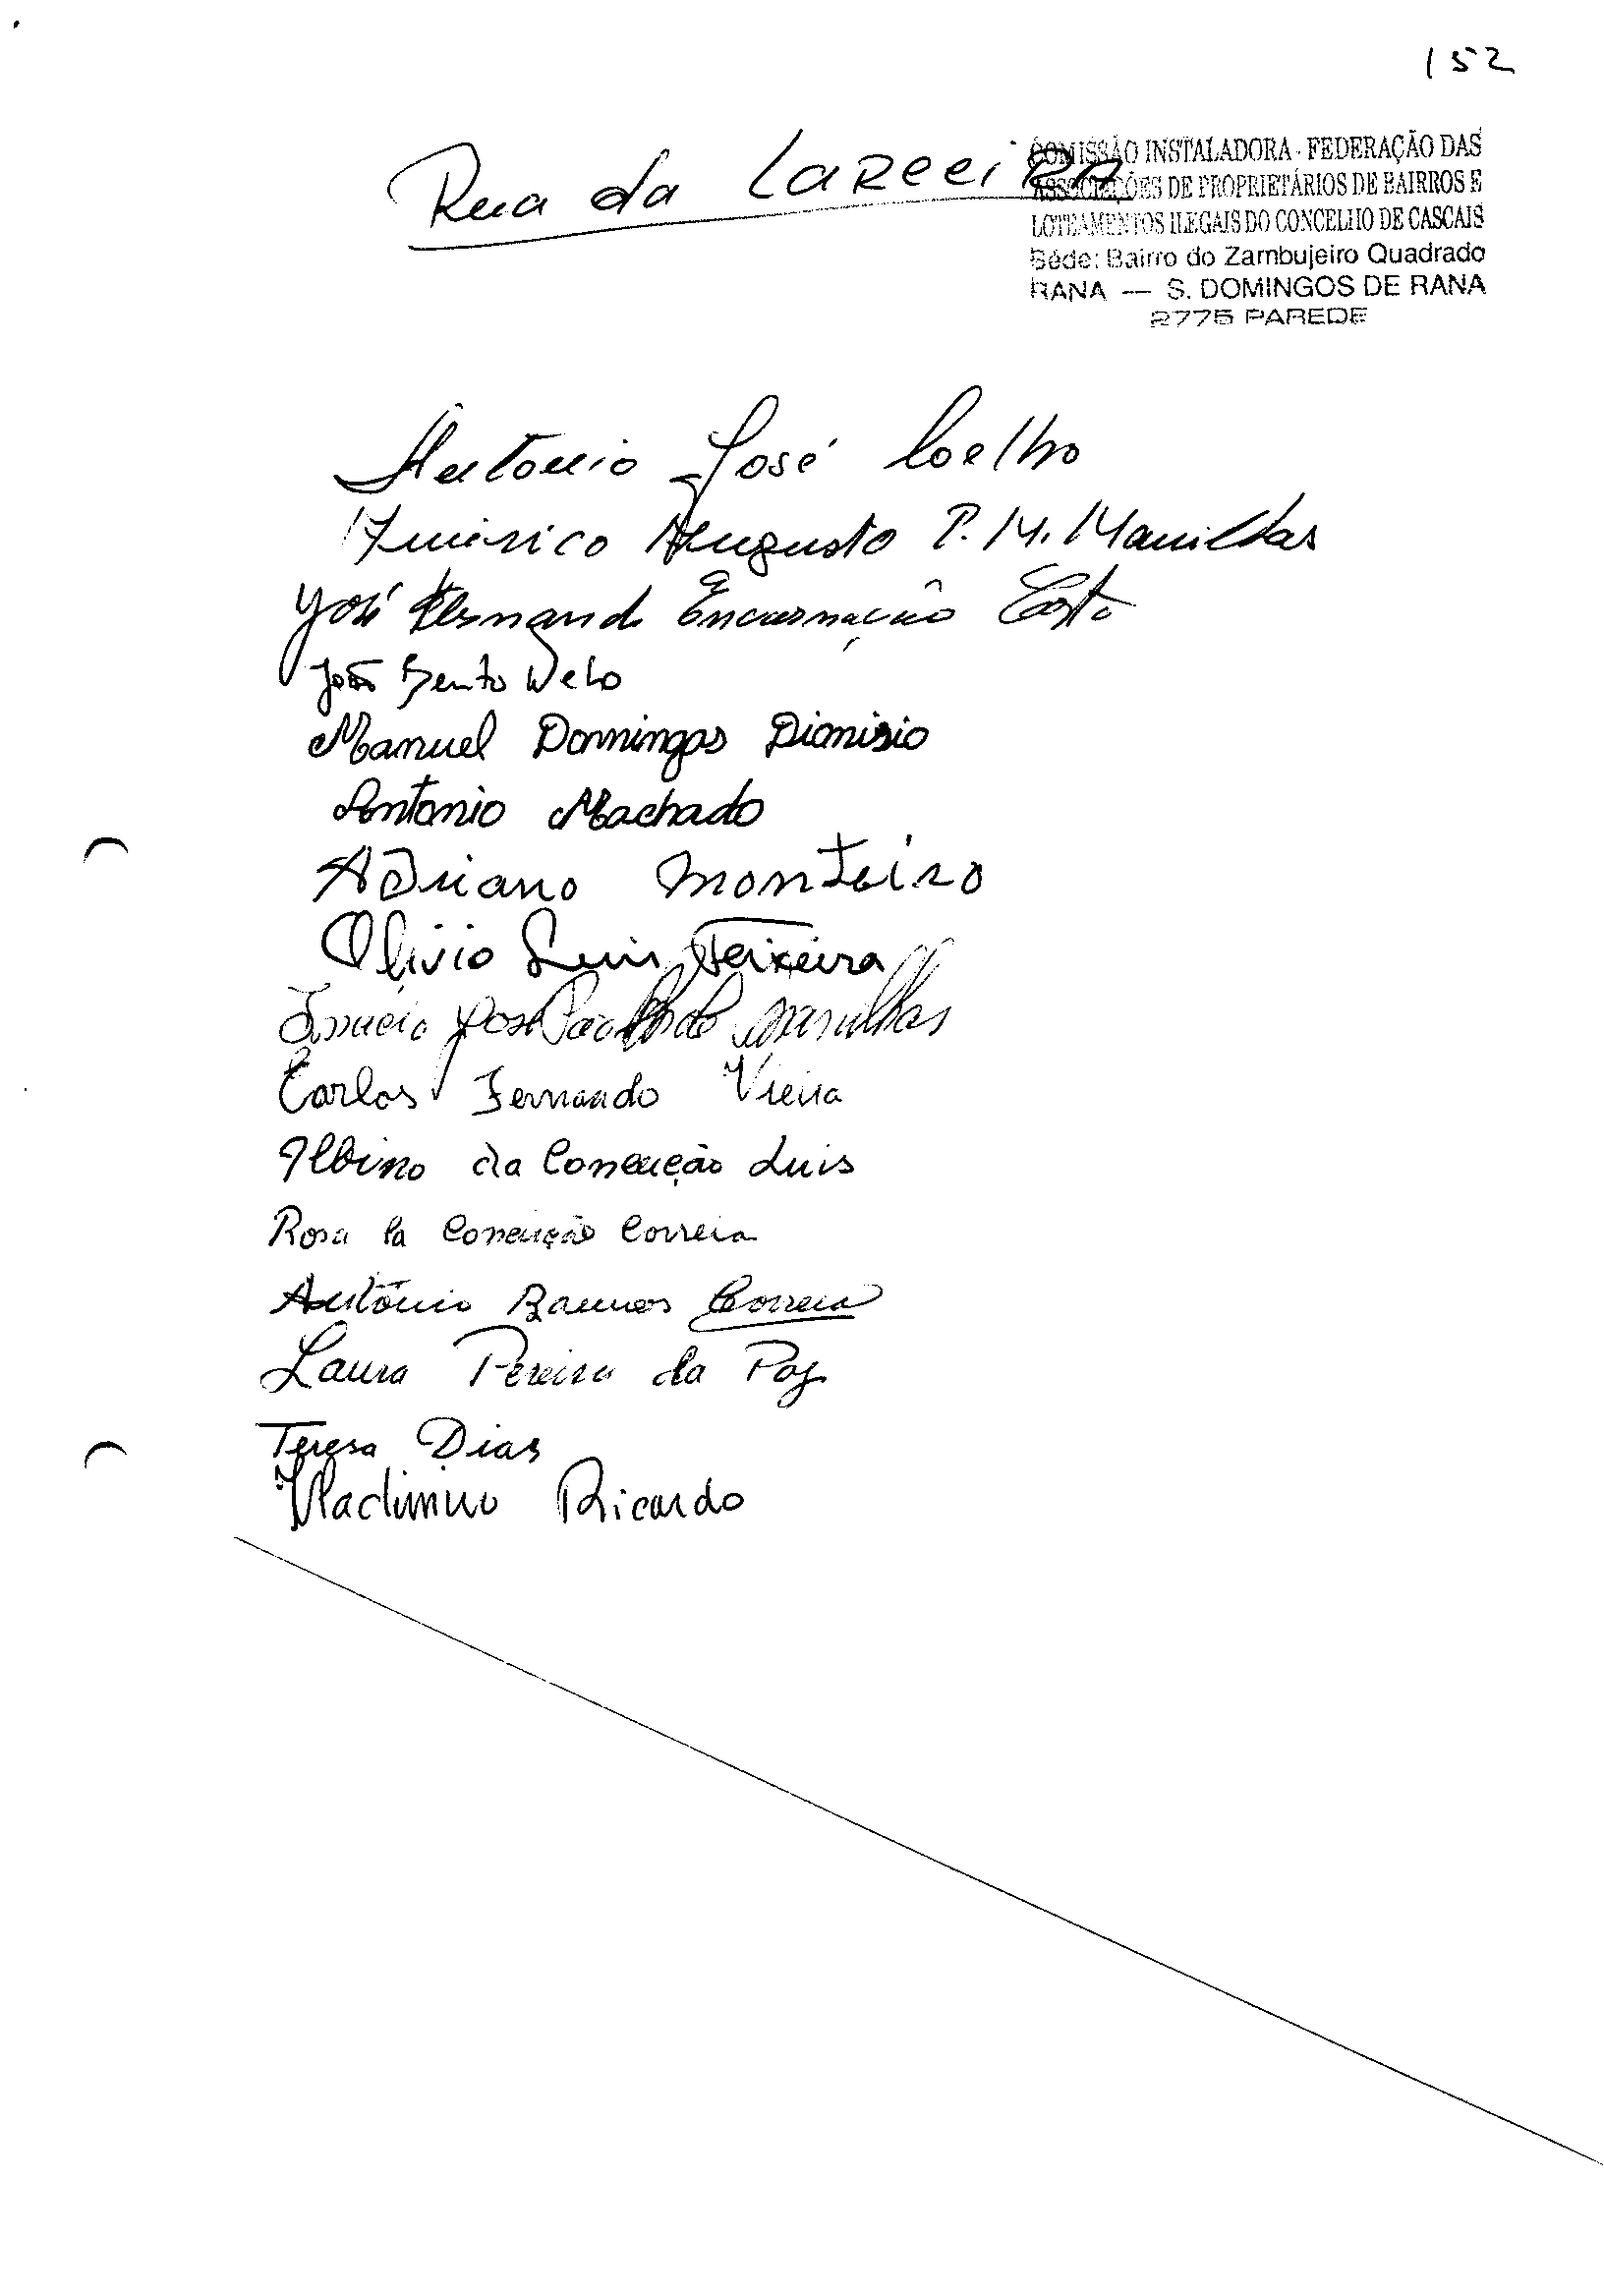 152
Rua da LaRceiRA
COMISSÃO INSTALADORA - FEDERAÇÃO DAS
ASSOCIAÇÕES DE PROPRIETÁRIOS DE BAIRROS E
LOTEAMENTOS ILEGAIS DO CONCELHO DE CASCAIS
Séde: Bairro do Zambujeiro Quadrado
RANA — S. DOMINGOS DE RANA
2775 PAREDE
Antonio José Coelho
Américo Augusto P. M. Manilhas
José Fernando Encarnação Costa
João Bento
Manuel Domingos Dionisio
Antonio Machado
Adriano Monteiro
Olivio Luis Teixeira
José Manilhas
Carlos Fernando Vieira
Albino da Conceição Luis
Rosa da Conceição Correia
António Correia
Laura Pereira da Paz
Teresa Dias
Vladimiro Ricardo